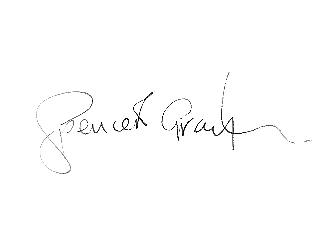 Spencer Grant